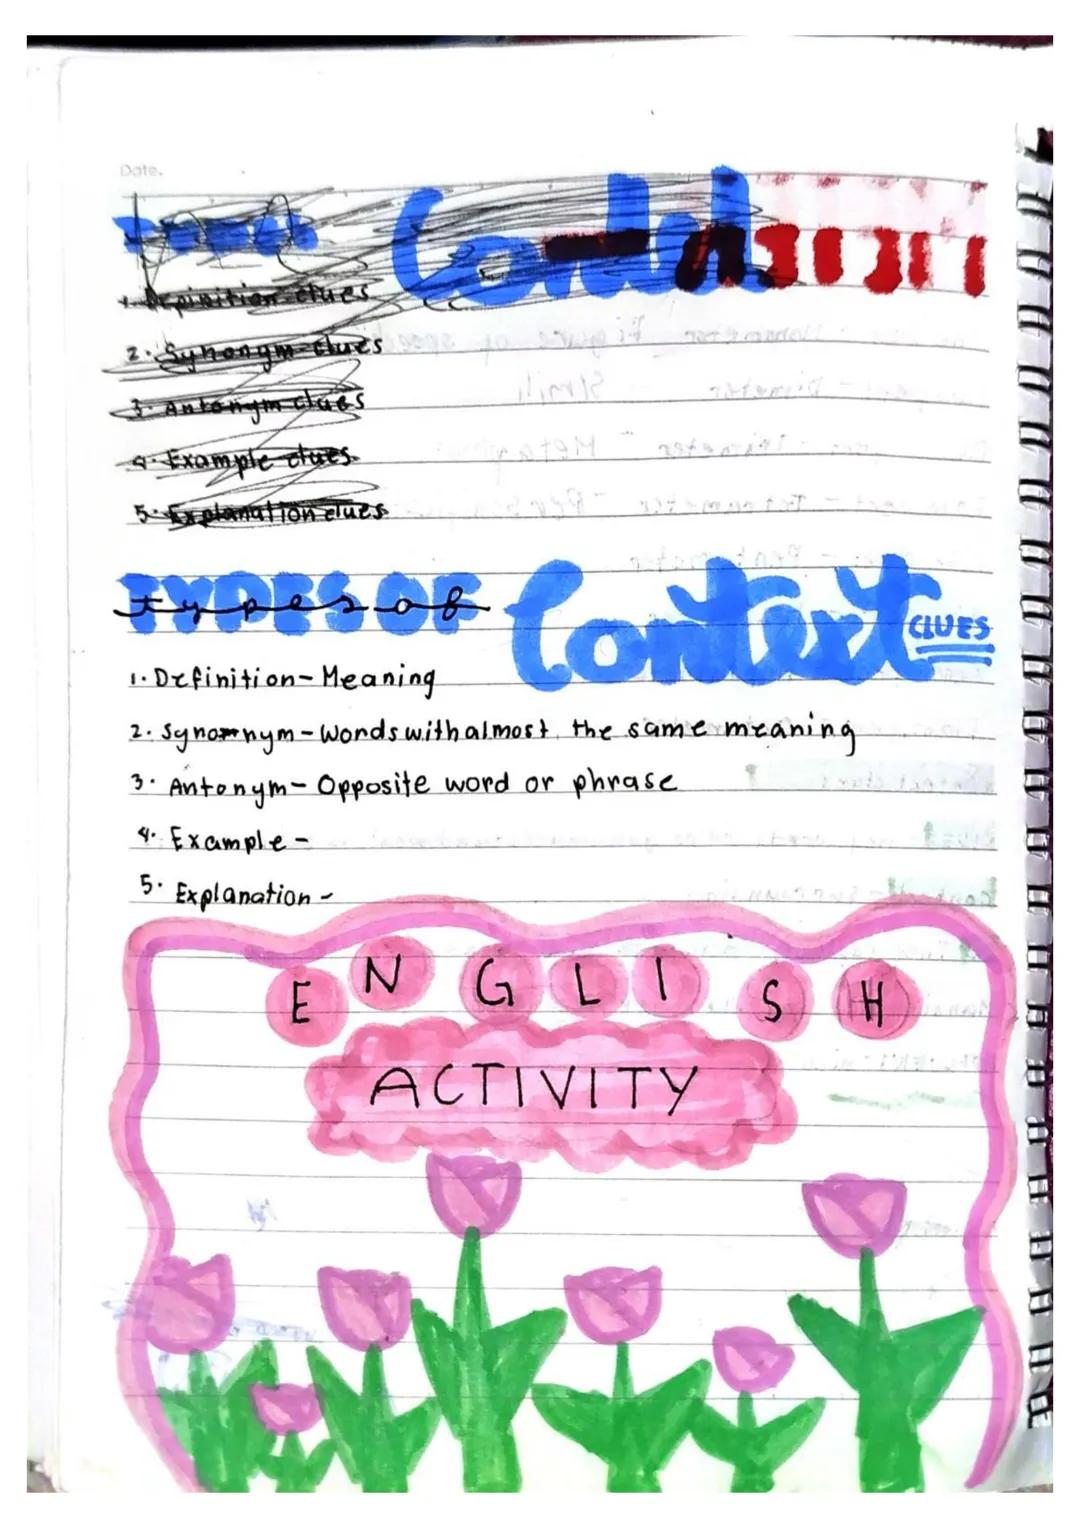 Date.
1. Depinition clues
2. Synongm clues
3. Antonym clues
4. Example clues
5. Explanation clues
TYPES OF Context CLUES
types of
1. Definition - Meaning
2. Synomnym - Words with almost the same meaning
3. Antonym - Opposite word or phrase
4. Example -
5. Explanation -
ENGLISH
ACTIVITY